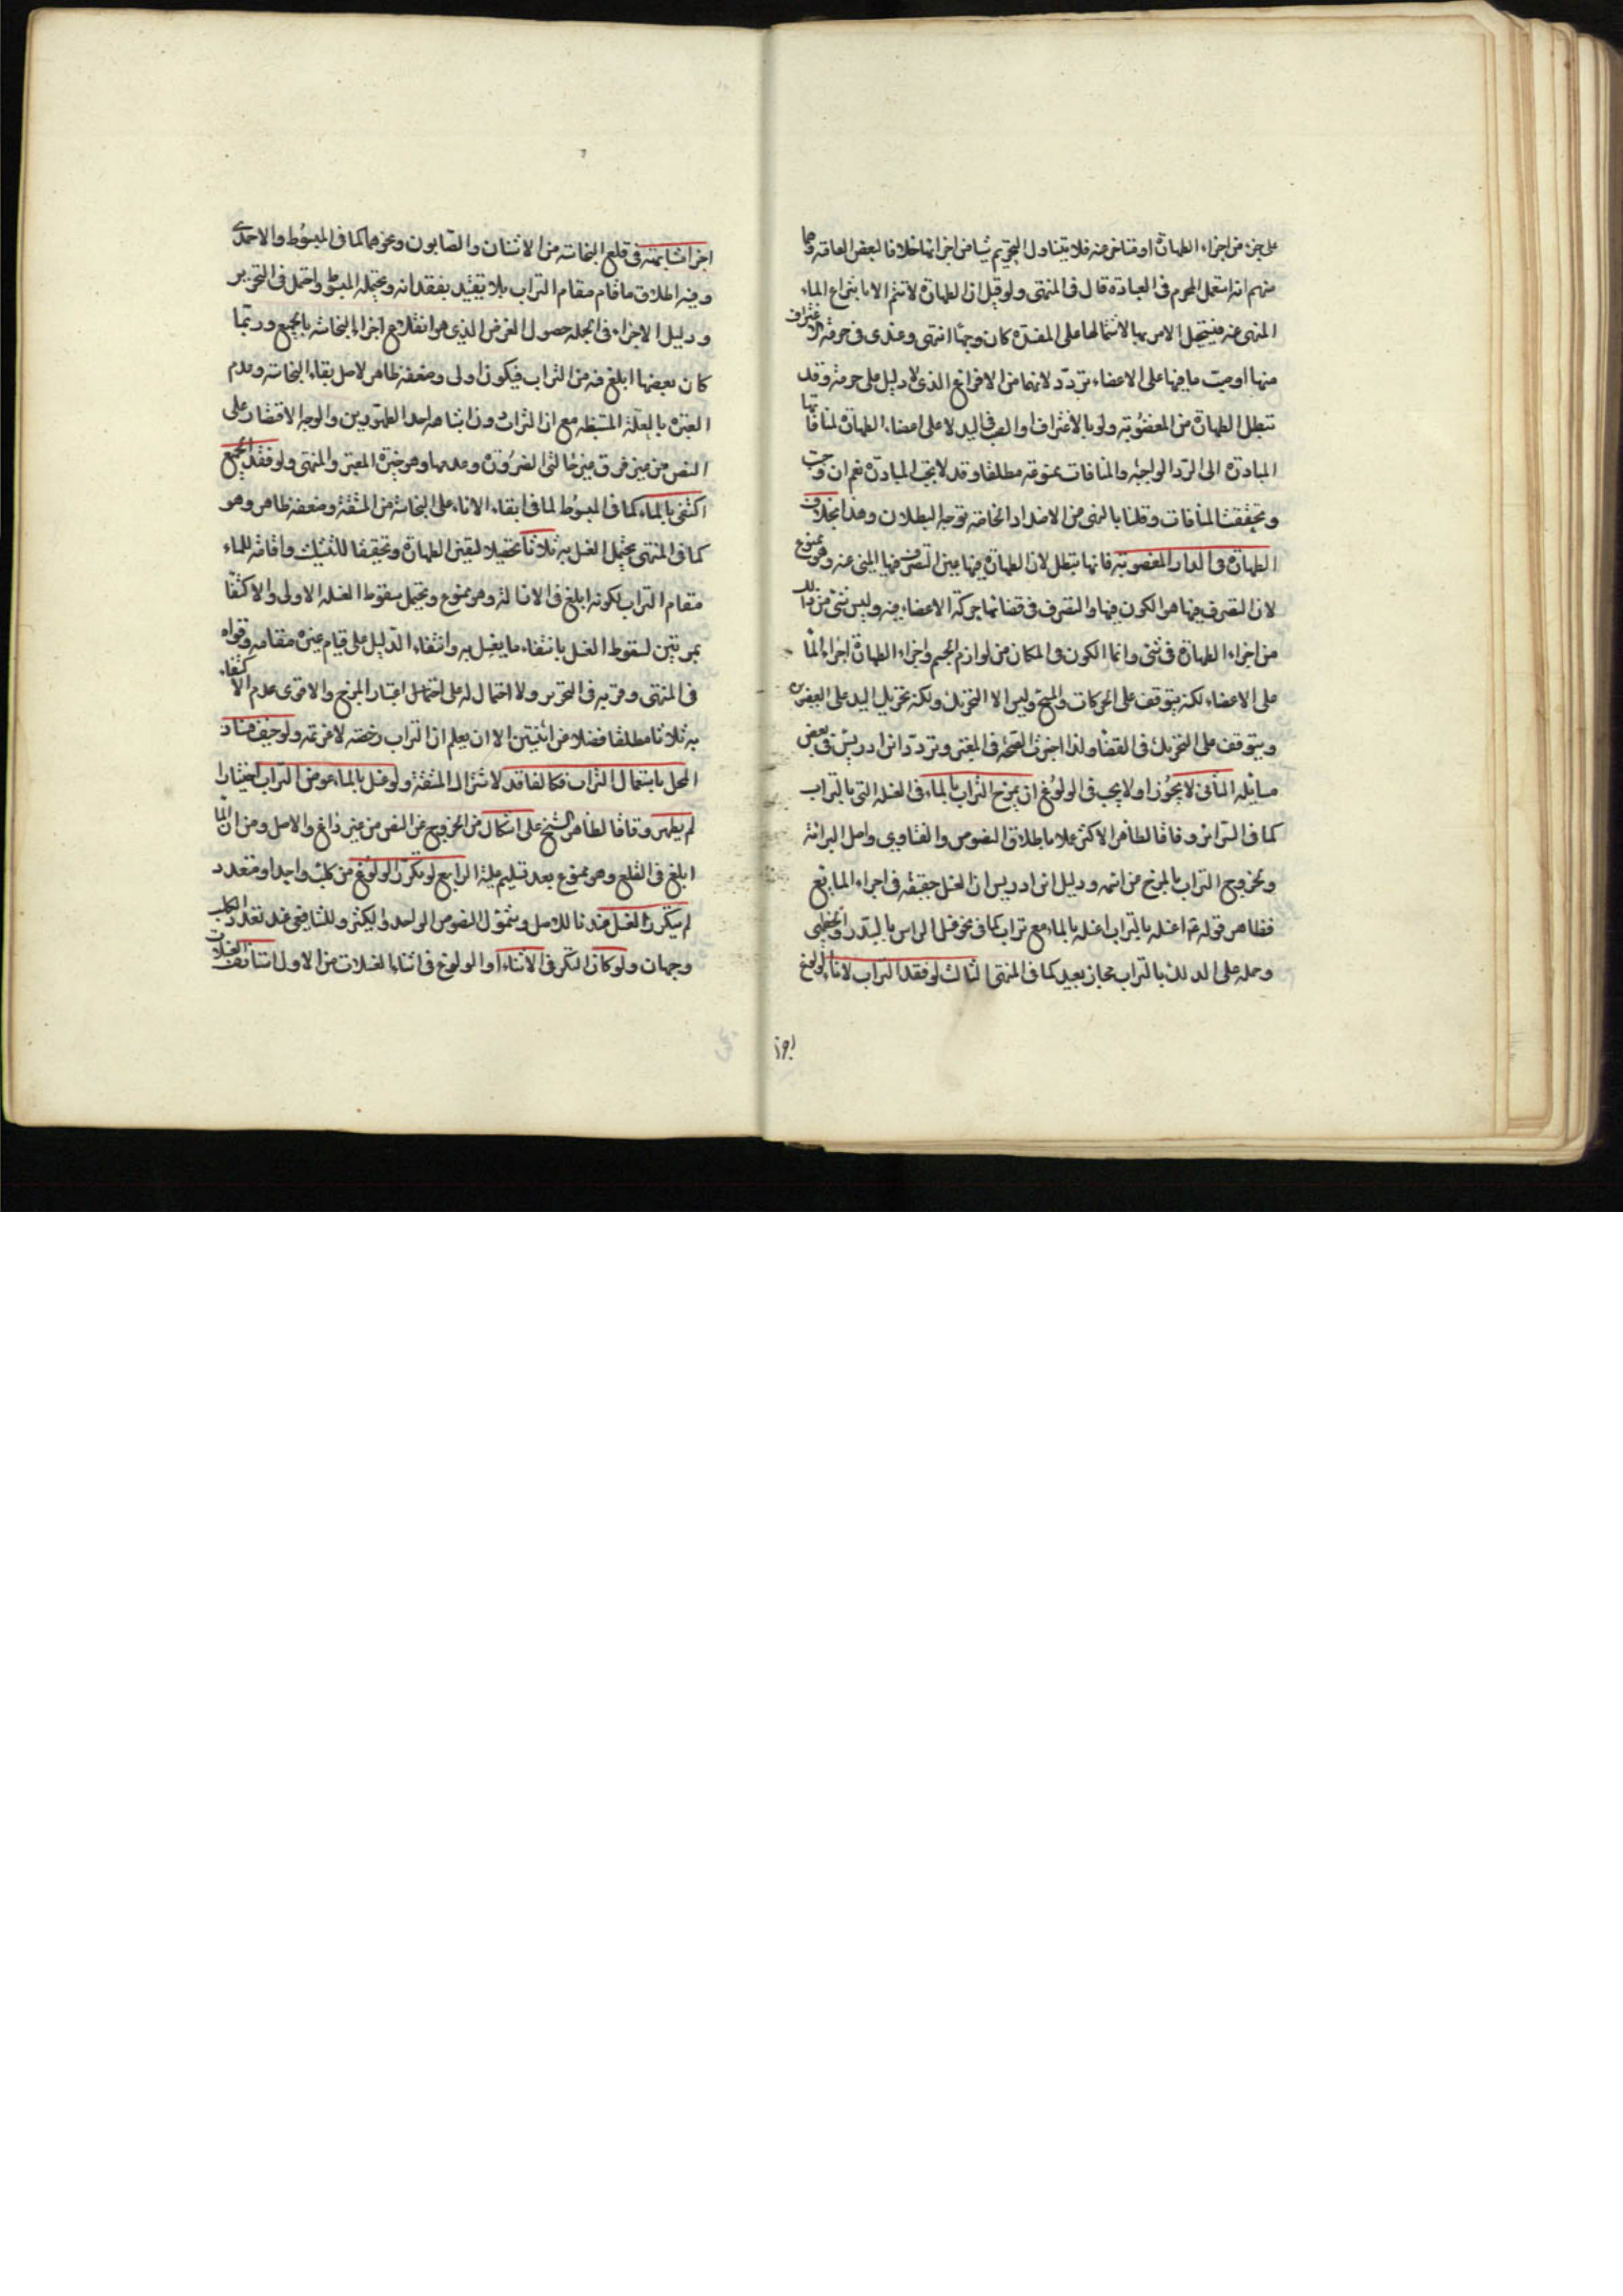 على جزء من اجزاء الطهارة او متاخر عنه فلا يتناول التحريم شيئا من اجزائها خلافا لبعض العامة وهما
منهم انه استعمل المحرم في العبادة قال في المنتهى ولو قيل ان الطهارة لا تتم الا بانتزاع الماء
المنهى عنه فيستحيل الامر بها لاشتمالها على المفسدة كان وجها انتهى وعندى في حرمة الاغتراف
منها او صب ما فيها على الاعضاء تردد لانهما من الافراغ الذى لا دليل على حرمته وقد
تبطل الطهارة من المغصوبة ولو بالاغتراف او الصب في اليد لا على اعضاء الطهارة لمنافاتها
المبادرة الى الرد الواجبة والمنافات ممنوعة مطلقا وقد لا تجب المبادرة نعم ان وجبت
وتحققت المنافات وقلنا بالنهى من الاضداد الخاصة توجه البطلان وهذا بخلاف
الطهارة في الدار المغصوبة فانها تبطل لان الطهارة فيها عين التصرف فيها المنهى عنه وهو ممنوع
لان التصرف فيها هو الكون فيها والتصرف في فضائها حركة الاعضاء فيه وليس شئ من ذلك
من اجزاء الطهارة في شئ وانما الكون في المكان من لوازم الجسم واجزاء الطهارة اجراء الماء
على الاعضاء لكنه يتوقف على الحركات والمسح وليس الا التحريك ولكنه تحريك اليد على العضو
ويتوقف على التحريك في الفضاء ولذا اختيرت الصحة في المعتبر وتردد ابن ادريس في بعض
مسائله الثاني لا يجوز او لا يجب في الولوغ ان يمزج التراب بالماء في الغسلة التي بالتراب
كما في السرائر وفاقا لظاهر الاكثر عملا باطلاق النصوص والفتاوى واصل البرائة
وخروج التراب بالمزج من اسمه ودليل ابن ادريس ان الغسل حقيقة في اجراء المايع
فظاهر قوله ع اغسله بالتراب اغسله بالماء مع تراب كما في نحو غسل الراس بالسدر والخطمى
وحمله على الدلك بالتراب مجاز بعيد كما في المنتهى الثالث لو فقد التراب لاناء الولوغ
اجزا
اجزا مشابهته في قلع النجاسة من الاشنان والصابون ونحوهما كما في المبسوط والاحمدى
وفيه اطلاق ما قام مقام التراب بلا تقييد بفقدانه ويحتمله المبسوط واحتمل في التحرير
ودليل الاجزاء في الجملة حصول الغرض الذي هو انقلاع اجزاء النجاسة بالجميع وربما
كان بعضها ابلغ فيه من التراب فيكون اولى وضعفه ظاهر لاصل بقاء النجاسة وعدم
العبرة بالعلة المستنبطة مع ان التراب ورد انه احد الطهورين والوجه الاقتصار على
النص من غير فرق بين حالتى الضرورة وعدمها وهو خيرة المعتبر والمنتهى ولو فقد الجميع
اكتفى بالماء كما في المبسوط لما في ابقاء الاناء على النجاسة من المشقة وضعفه ظاهر وهو
كما في المنتهى يحتمل الغسل به ثلاثا تحصيلا ليقين الطهارة وتحقيقا للتثليث واقامة للماء
مقام التراب لكونه ابلغ في الازالة وهو ممنوع ويحتمل سقوط الغسلة الاولى والاكتفا
بمرتين لسقوط الغسل بانتفاء ما يغسل به وانتفاء الدليل على قيام غيره مقامه وقواه
في المنتهى وقربه في التحرير ولا احتمال له على احتمال اعتبار المزج والاقوى عدم الاكتفاء
به ثلاثا مطلقا فضلا عن اثنتين الا ان يعلم ان التراب رخصة لا عزيمة ولو خيف فساد
المحل باستعمال التراب فكالفاقد لاشتراك المشقة ولو غسل بالماء عوض التراب اختيارا
لم يطهر وفاقا لظاهر الشيخ على اشكال من الخروج عن النص من غير داع والاصل ومن ان الماء
ابلغ في القلع وهو ممنوع بعد تسليم علية الرابع لو تكرر الولوغ من كلب واحد او متعدد
لم يتكرر الغسل عندنا للاصل وشمول النصوص الواحد والكثير وللشافعي عند تعدد الكلب
وجهان ولو كان التكرر في الاثناء او الولوغ في اثناء الغسلات من الاول استانف الغسلات